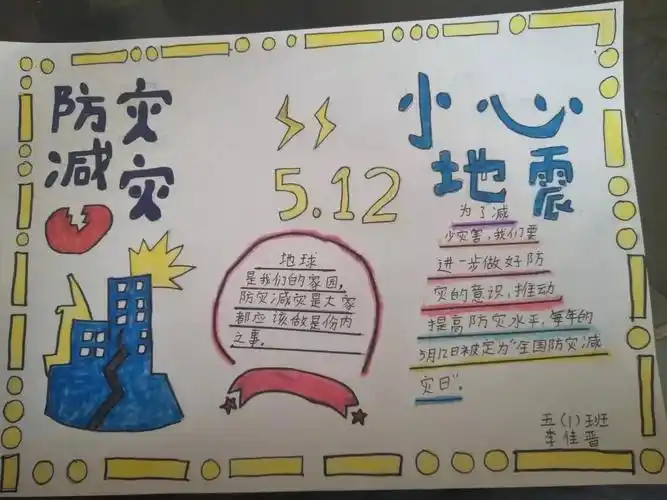 防灾
减灾
5.12
小心
地震
地球
是我们的家园,
防灾减灾是大家
都应该做是份内
之事.
为了减
少灾害,我们要
进一步做好防
灾的意识,推动
提高防灾水平,每年的
5月12日被定为“全国防灾减
灾日”.
五(1)班
李佳晋